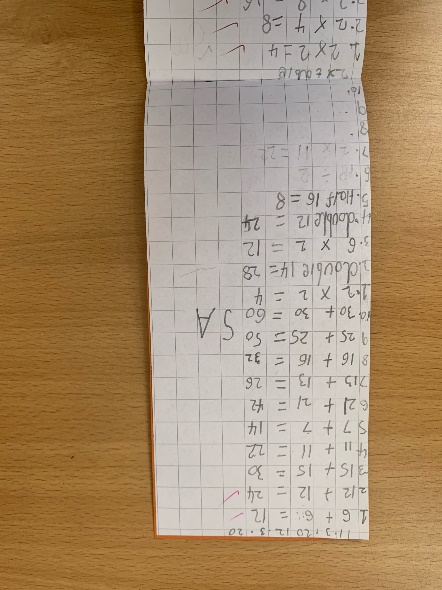 1 6 + 6 = 12
2 12 + 12 = 24
3 15 + 15 = 30
4 11 + 11 = 22
5 7 + 7 = 14
6 21 + 21 = 42
7 13 + 13 = 26
8 16 + 16 = 32
9 25 + 25 = 50
10 30 + 30 = 60
SA
1. 2 x 2 = 4
2. double 14 = 28
3. 6 x 2 = 12
4. double 12 = 24
5. Half 16 = 8
6. 18 ÷ 2
7. 2 x 11 = 22
8.
9.
10.
2 x table
1. 2 x 2 = 4
2. 2 x 4 = 8